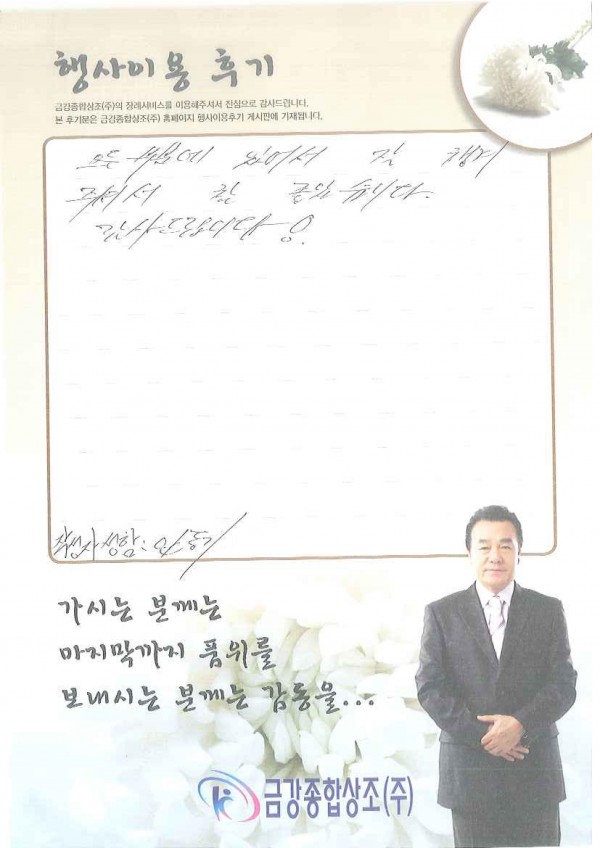 행사이용 후기
금강종합상조(주)의 장례서비스를 이용해주셔서 진심으로 감사드립니다.
본 후기문은 금강종합상조(주) 홈페이지 행사이용후기 게시판에 기재됩니다.
모든 부분에 있어서 잘 챙겨
주셔서 참 좋았습니다.
감사드립니다
작성자 성함:
가시는 분께는
마지막까지 품위를
보내시는 분께는 감동을...
금강종합상조(주)